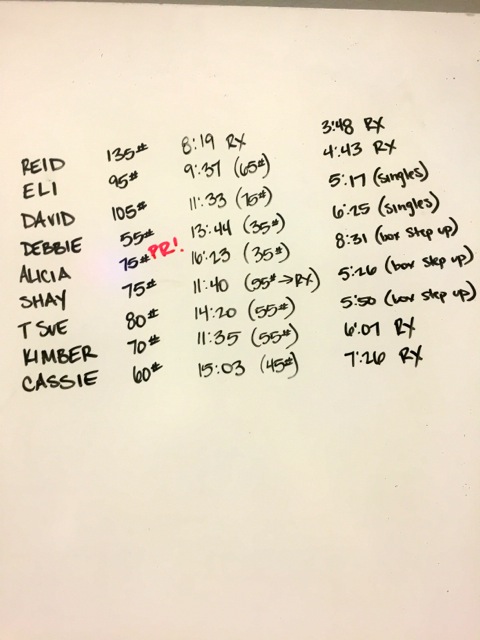 REID 135# 8:19 RX 3:48 RX
ELI 95# 9:37 (65#) 4:43 RX
DAVID 105# 11:33 (75#) 5:17 (singles)
DEBBIE 55# 13:44 (35#) 6:25 (singles)
ALICIA 75# PR! 16:23 (35#) 8:31 (box step up)
SHAY 75# 11:40 (55#→RX) 5:26 (box step up)
T SUE 80# 14:20 (55#) 5:50 (box step up)
KIMBER 70# 11:35 (55#) 6:07 RX
CASSIE 60# 15:03 (45#) 7:26 RX